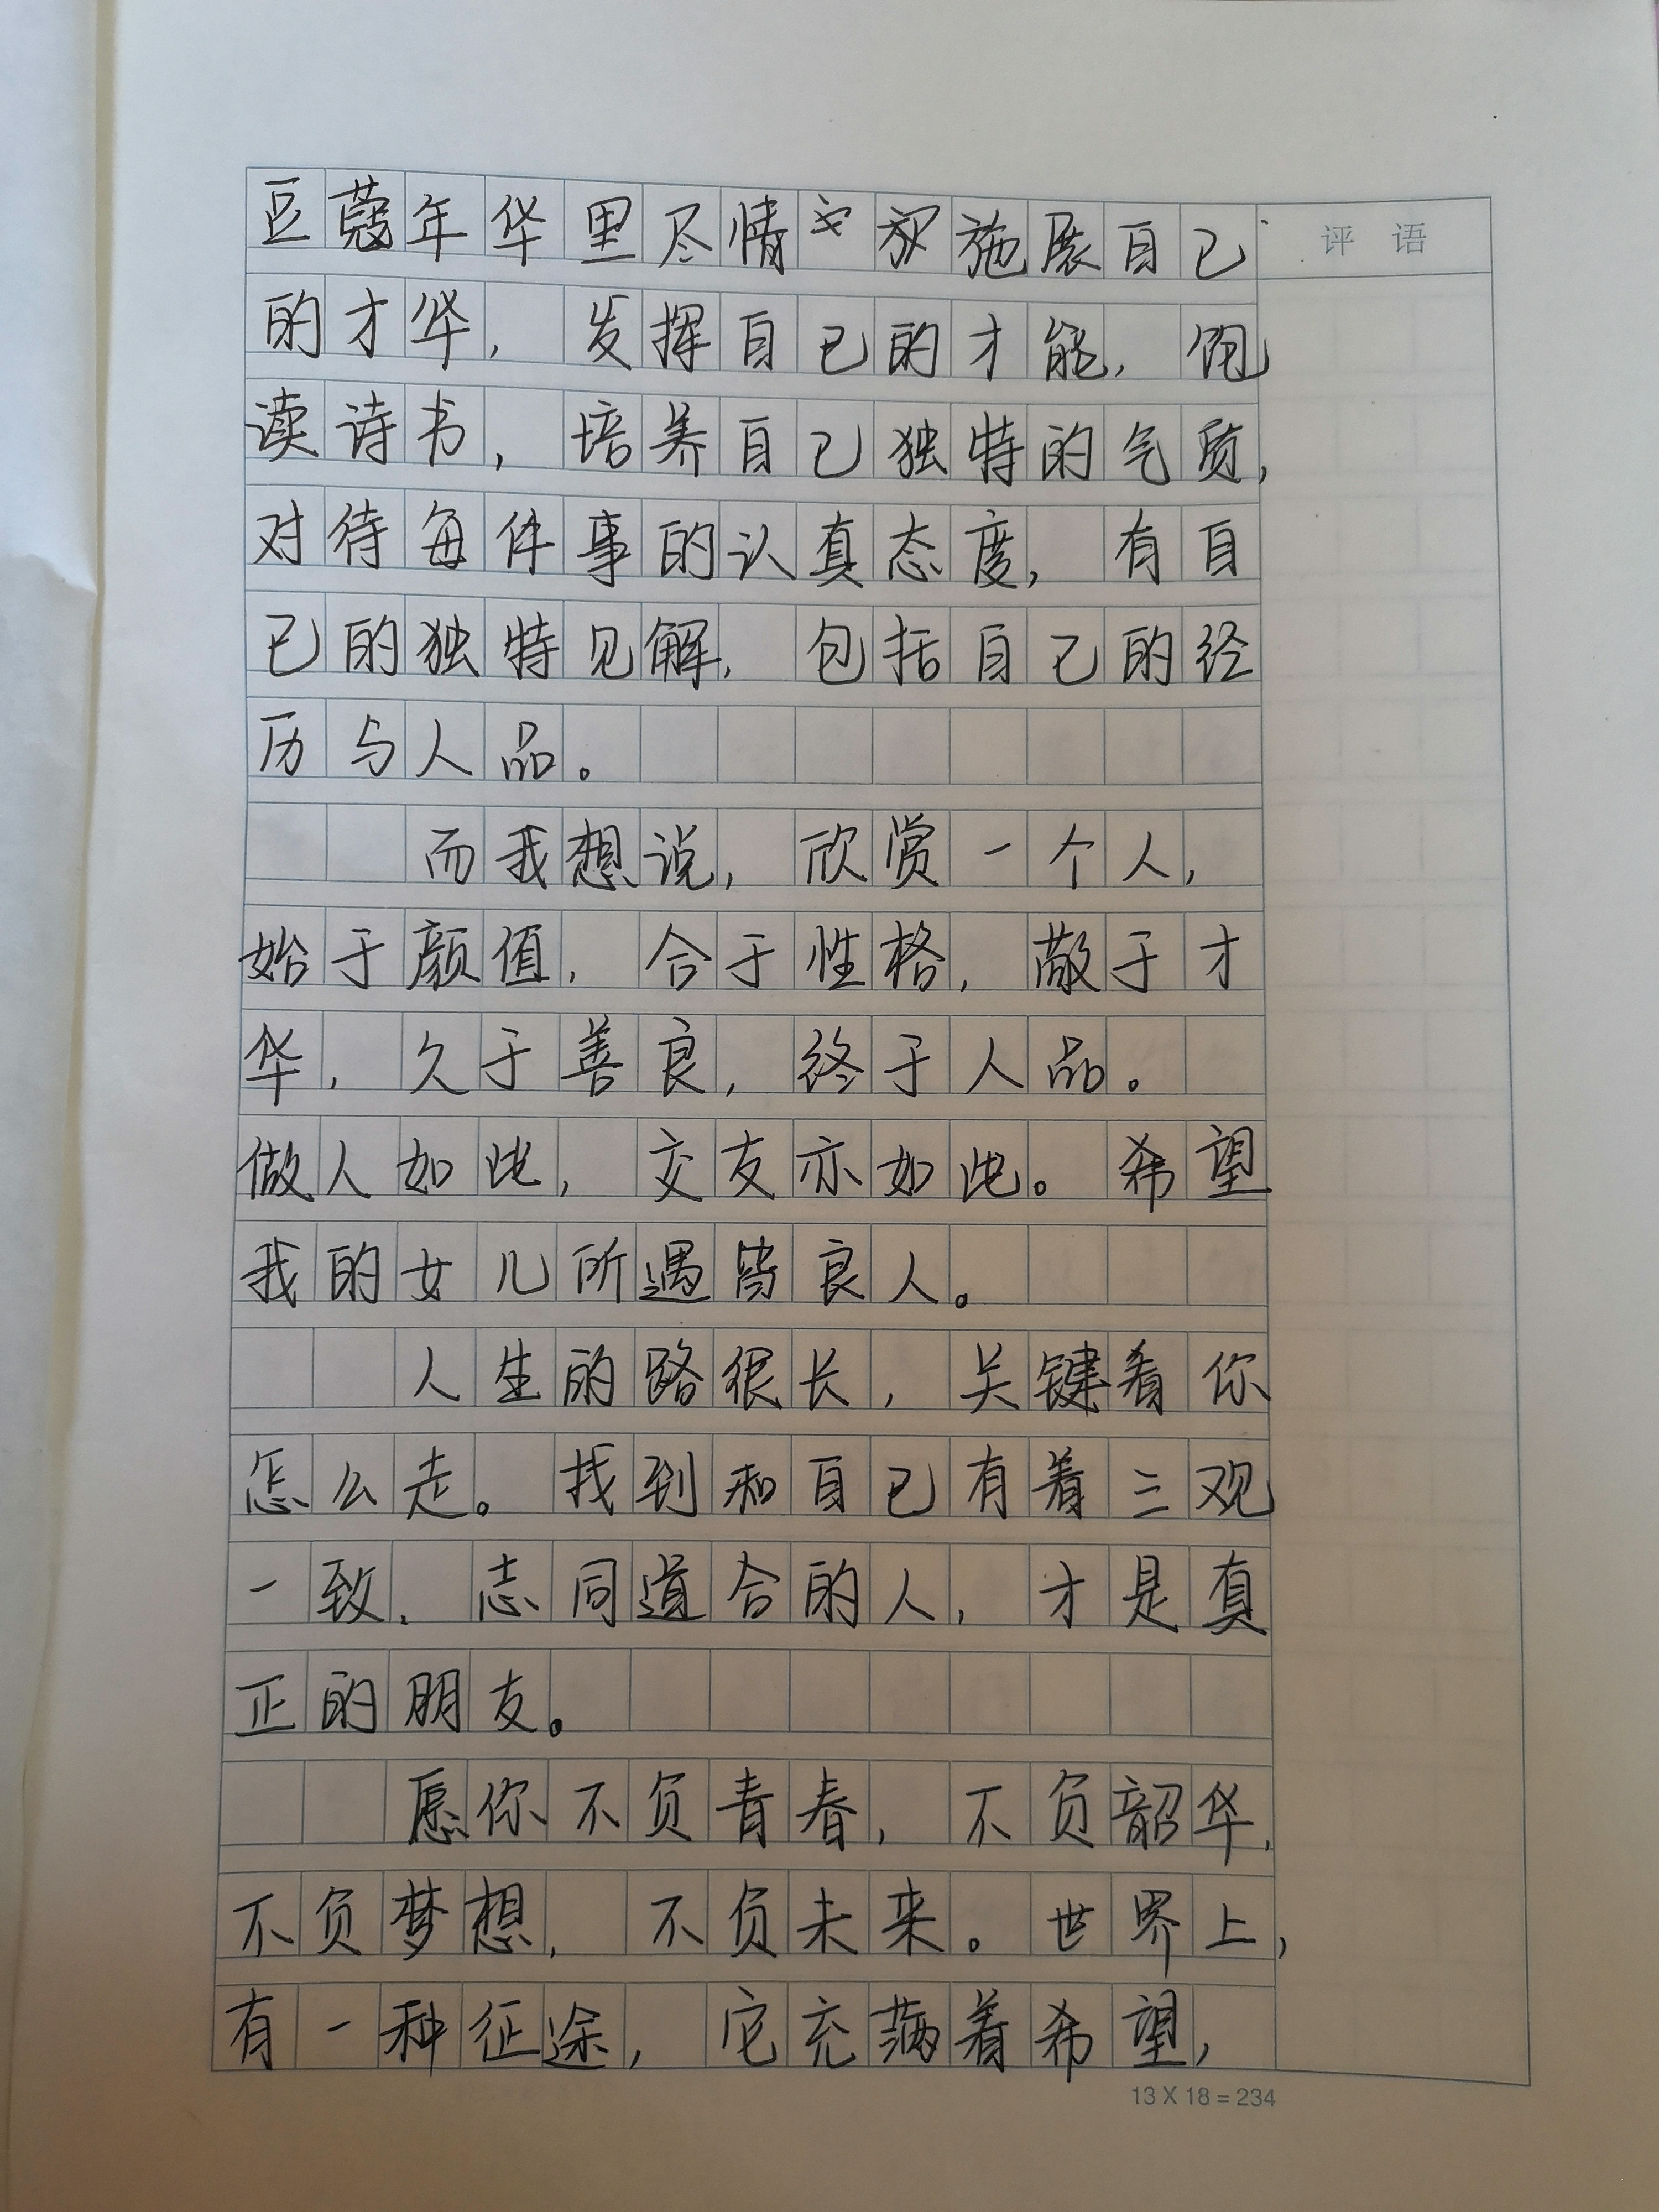 豆蔻年华里尽情施展自己
评语
的才华，发挥自己的才能，饱
读诗书，培养自己独特的气质，
对待每件事的认真态度，有自
己的独特见解，包括自己的经
历与人品。
而我想说，欣赏一个人，
始于颜值，合于性格，敬于才
华，久于善良，终于人品。
做人如此，交友亦如此。希望
我的女儿所遇皆良人。
人生的路很长，关键看你
怎么走。找到和自己有着三观
一致、志同道合的人，才是真
正的朋友。
愿你不负青春，不负韶华，
不负梦想，不负未来。世界上，
有一种征途，它充满着希望，
13 X 18 = 234